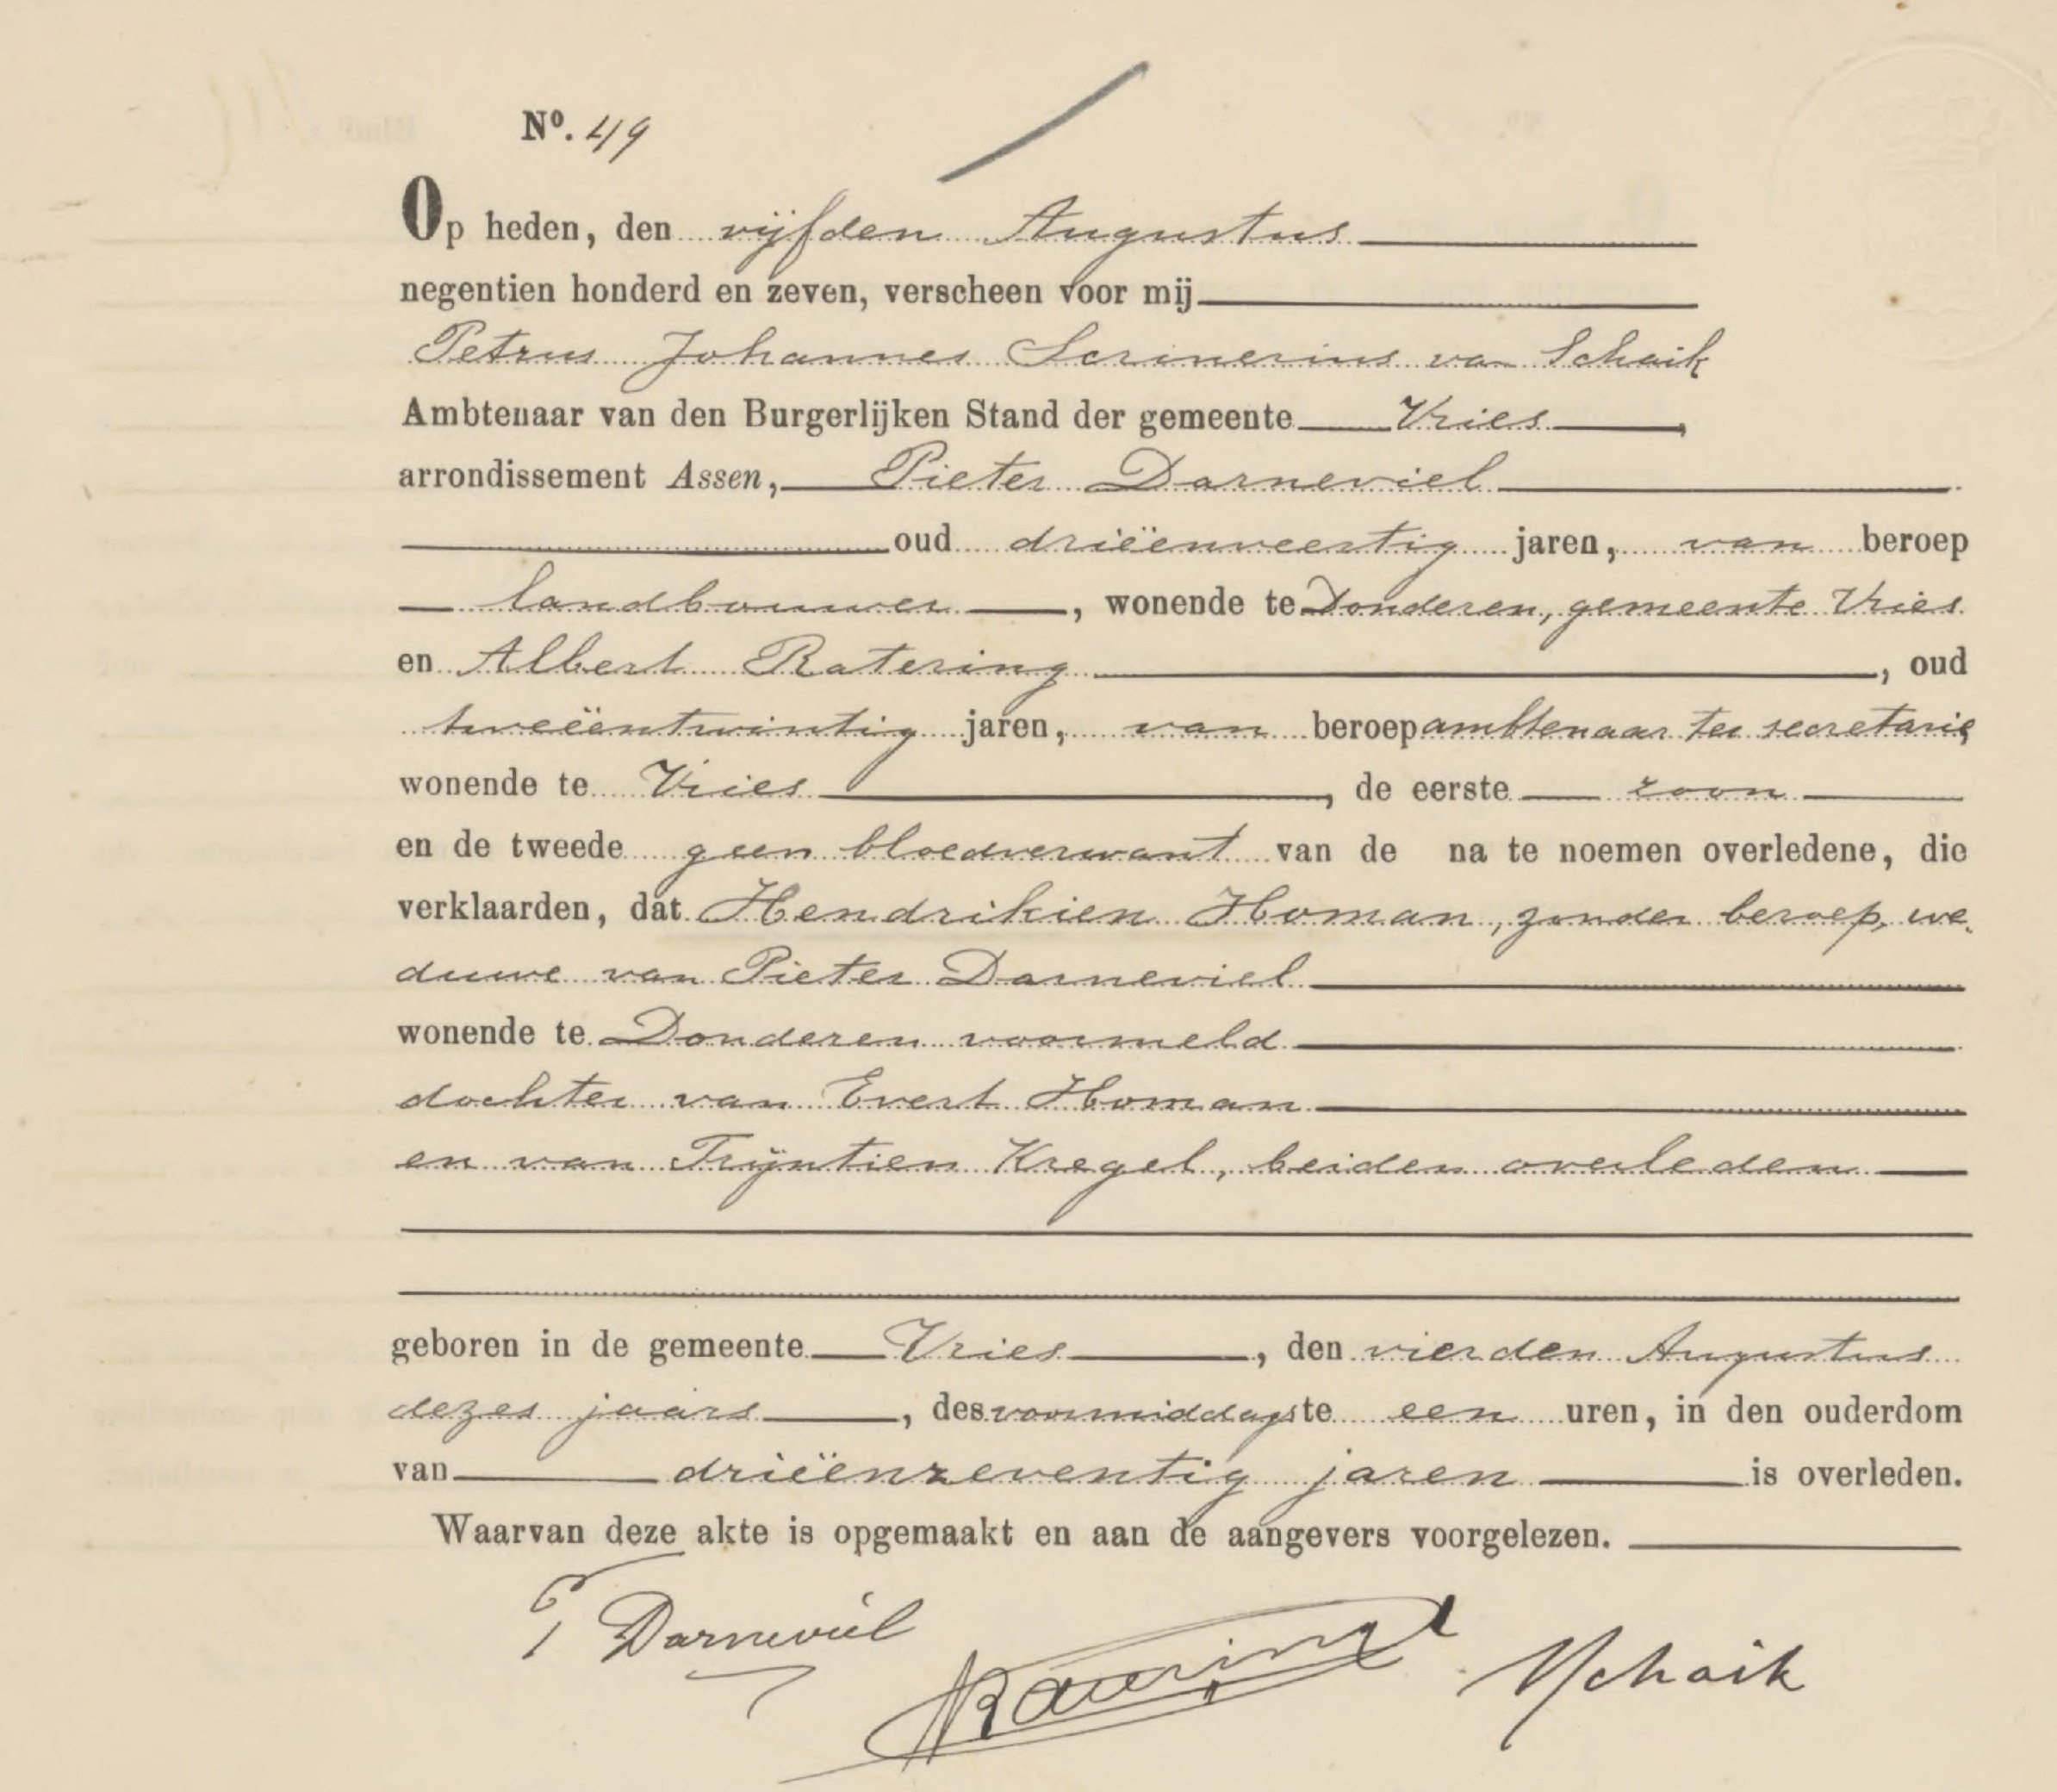 Nº. 49
Op heden, den vijfden Augustus
negentien honderd en zeven, verscheen voor mij
Petrus Johannes Scrinerius van Schaik
Ambtenaar van den Burgerlijken Stand der gemeente Vries,
arrondissement Assen, Pieter Darneviel
oud drieënveertig jaren, van beroep
landbouwer, wonende te Donderen, gemeente Vries
en Albert Ratering, oud
tweeëntwintig jaren, van beroep ambtenaar ter secretarie,
wonende te Vries, de eerste zoon
en de tweede geen bloedverwant van de na te noemen overledene, die
verklaarden, dat Hendrikien Homan, zonder beroep, we-
duwe van Pieter Darneviel
wonende te Donderen voormeld
dochter van Evert Homan
en van Trijntien Kregel, beiden overleden
geboren in de gemeente Vries, den vierden Augustus
dezes jaars, des voormiddags te een uren, in den ouderdom
van drieënzeventig jaren is overleden.
Waarvan deze akte is opgemaakt en aan de aangevers voorgelezen.
P Darneviel
ARatering
VSchaik